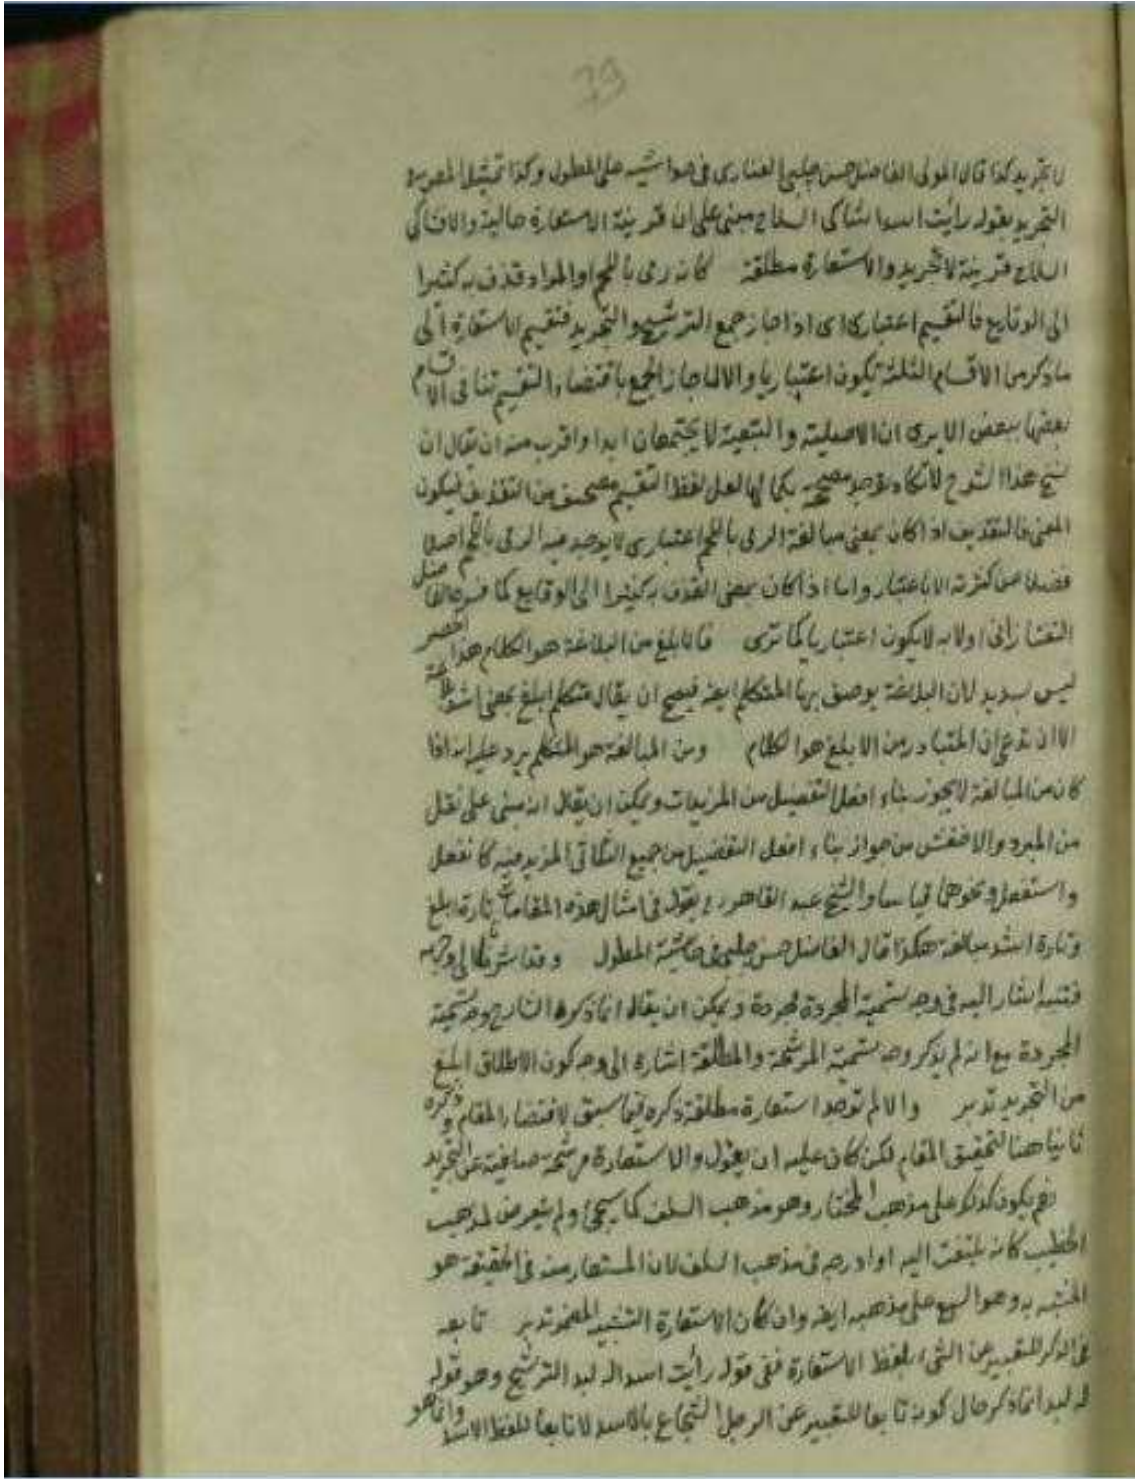 39
لا تجريد كذا قال المولى الفاضل حسن چلبي الفناري في حواشيه على المطول وكذا تمثيل المص
التجريد بقوله رأيت اسدا شاكى السلاح مبنى على ان قرينة الاستعارة حالية والا فشاكى
السلاح قرينة لا تجريد والاستعارة مطلقة كانه رمى باللحم او المراد قذف به كثيرا
الى الوقايع فالتقسيم اعتبارى اى اذا جاز جمع الترشيح والتجريد فتقسيم الاستعارة الى
ما ذكر من الاقسام الثلثة يكون اعتباريا والا لما جاز الجمع باقتضاء التقسيم تنافى الاقسام
بعضها ببعض الا يرى ان الاصلية والتبعية لا يجتمعان ابدا واقرب منه ان يقال ان
نسخ هذا الشرح لا تكاد توجد مصححه بكمالها لعل لفظ التقسيم مصحف من التقذيف فيكون
المعنى فالتقذيف اذا كان بمعنى مبالغة الرمى باللحم اعتبارى لا يوجد فيه الرمى باللحم اصلا
فضلا عن كثرته الا باعتبار واما اذا كان بمعنى القذف به كثيرا الى الوقايع كما فسر
التفتازانى اولا به لا يكون اعتباريا كما ترى فالابلغ من البلاغة هو الكلام هذا الحصر
ليس بسديد لان البلاغة يوصف بها المتكلم ايضا فيصح ان يقال متكلم ابلغ بمعنى اشد بلاغة
الا ان تدعى ان المتبادر من الابلغ هو الكلام ومن المبالغة هو المتكلم يرد عليه انه اذا
كان من المبالغة لا يجوز بناء افعل التفضيل من المزيدات ويمكن ان يقال انه مبنى على نقل
من المبرد والاخفش من جواز بناء افعل التفضيل من جميع الثلاثى المزيد فيه كانفعل
واستفعل ونحوهما قياسا والشيخ عبد القاهر يقول فى امثال هذه المقامات تارة ابلغ
وتارة اشد مبالغة هكذا قال الفاضل حسن چلبى فى حاشية المطول وقد اشرنا الى وجه
فتنبه اشار اليه فى وجه تسمية المجردة مجردة ويمكن ان يقال انما ذكره الشارح وجه تسمية
المجردة مع انه لم يذكر وجه تسمية المرشحة والمطلقة اشارة الى وجه كون الاطلاق ابلغ
من التجريد تدبر والا لم توجد استعارة مطلقة ذكره فيما سبق لاقتضاء المقام وذكره
ثانيا هنا لتحقيق المقام لكن كان عليه ان يقول والا استعارة مرشحة صافية عن التجريد
نعم يكون كذلك على مذهب المختار وهو مذهب السلف كما سيجئ ولم يتعرض لمذهب
الخطيب كانه يلتفت اليه او ادرجه فى مذهب السلف لان المستعار منه فى الحقيقة هو
المشبه به وهو السبع على مذهبه ايضا وان كان الاستعارة التشبيه المضمر تدبر تابعه
فى الذكر للتعبير عن الشئ بلفظ الاستعارة ففى قوله رأيت اسدا له لبد الترشيح وهو قوله
له لبد انما ذكر حال كونه تابعا للتعبير عن الرجل الشجاع بالاسد لا تابعا للفظ الاسد وانما هو